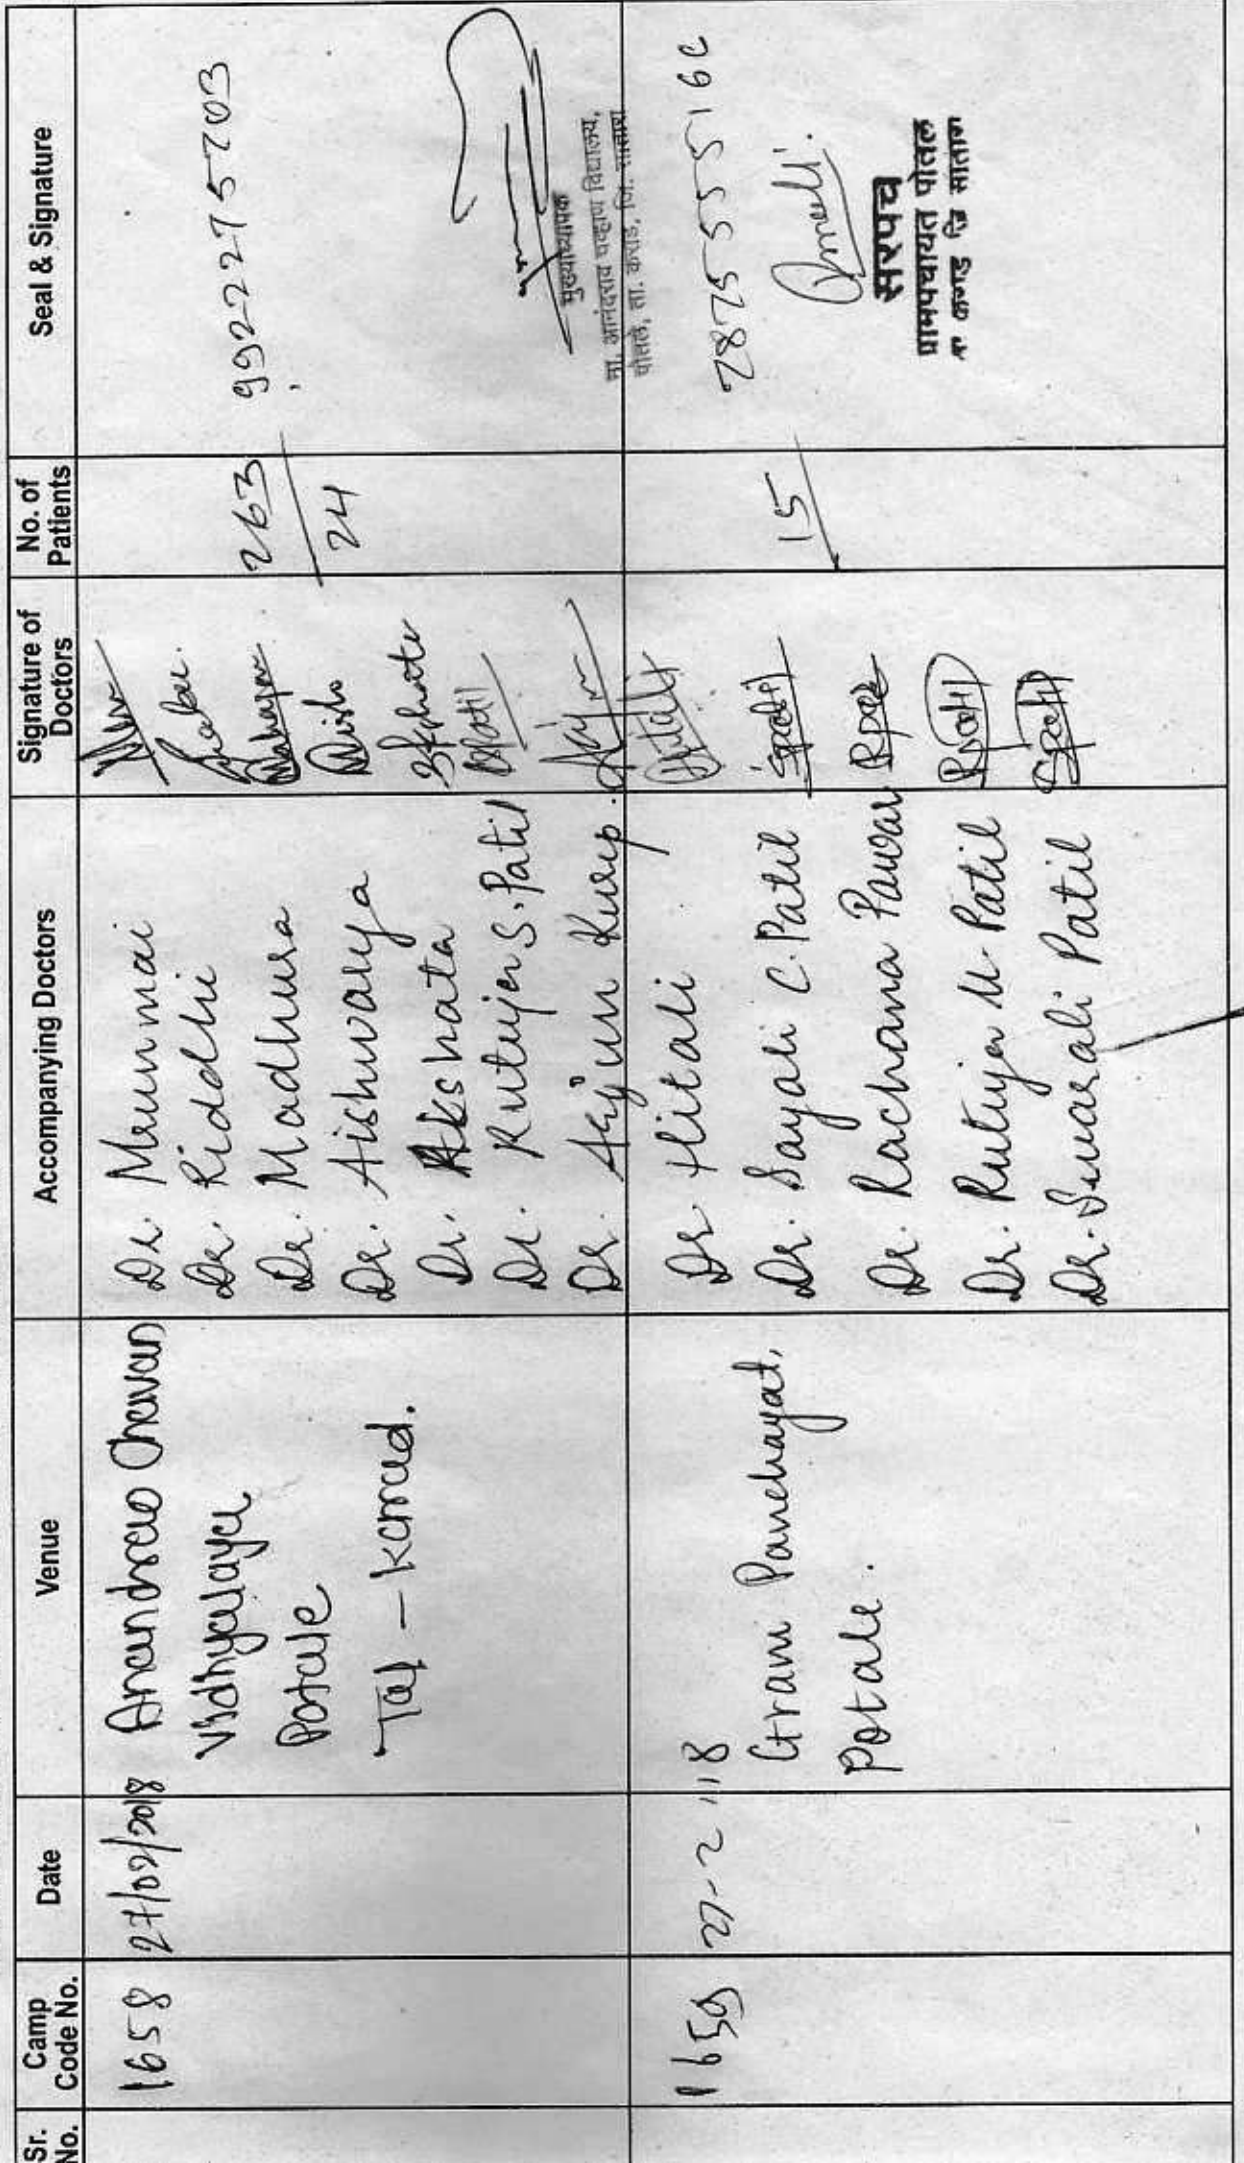 Sr. No.
Camp Code No.
Date
Venue
Accompanying Doctors
Signature of Doctors
No. of Patients
Seal & Signature
1658
27/02/2018
Anandrao Chavan
Vidhyalaya
Potale
Tal - Karad.
Dr. Mrunmai
Dr. Riddhi
Dr. Madhura
Dr. Aishwarya
Dr. Akshata
Dr. Rutuja S. Patil
Dr. Arjun Kurup.
263
24
9922275703
मुख्याध्यापक
मा. आनंदराव चव्हाण विद्यालय,
पोतले, ता. कराड, जि. सातारा
1659
27-2-18
Gram Panchayat,
Potale.
Dr Hitali
Dr. Sayali C. Patil
Dr. Rachana Pawar
Dr. Rutuja M. Patil
Dr. Swarali Patil
15
सरपंच
ग्रामपंचायत पोतले
कराड जि सातारा